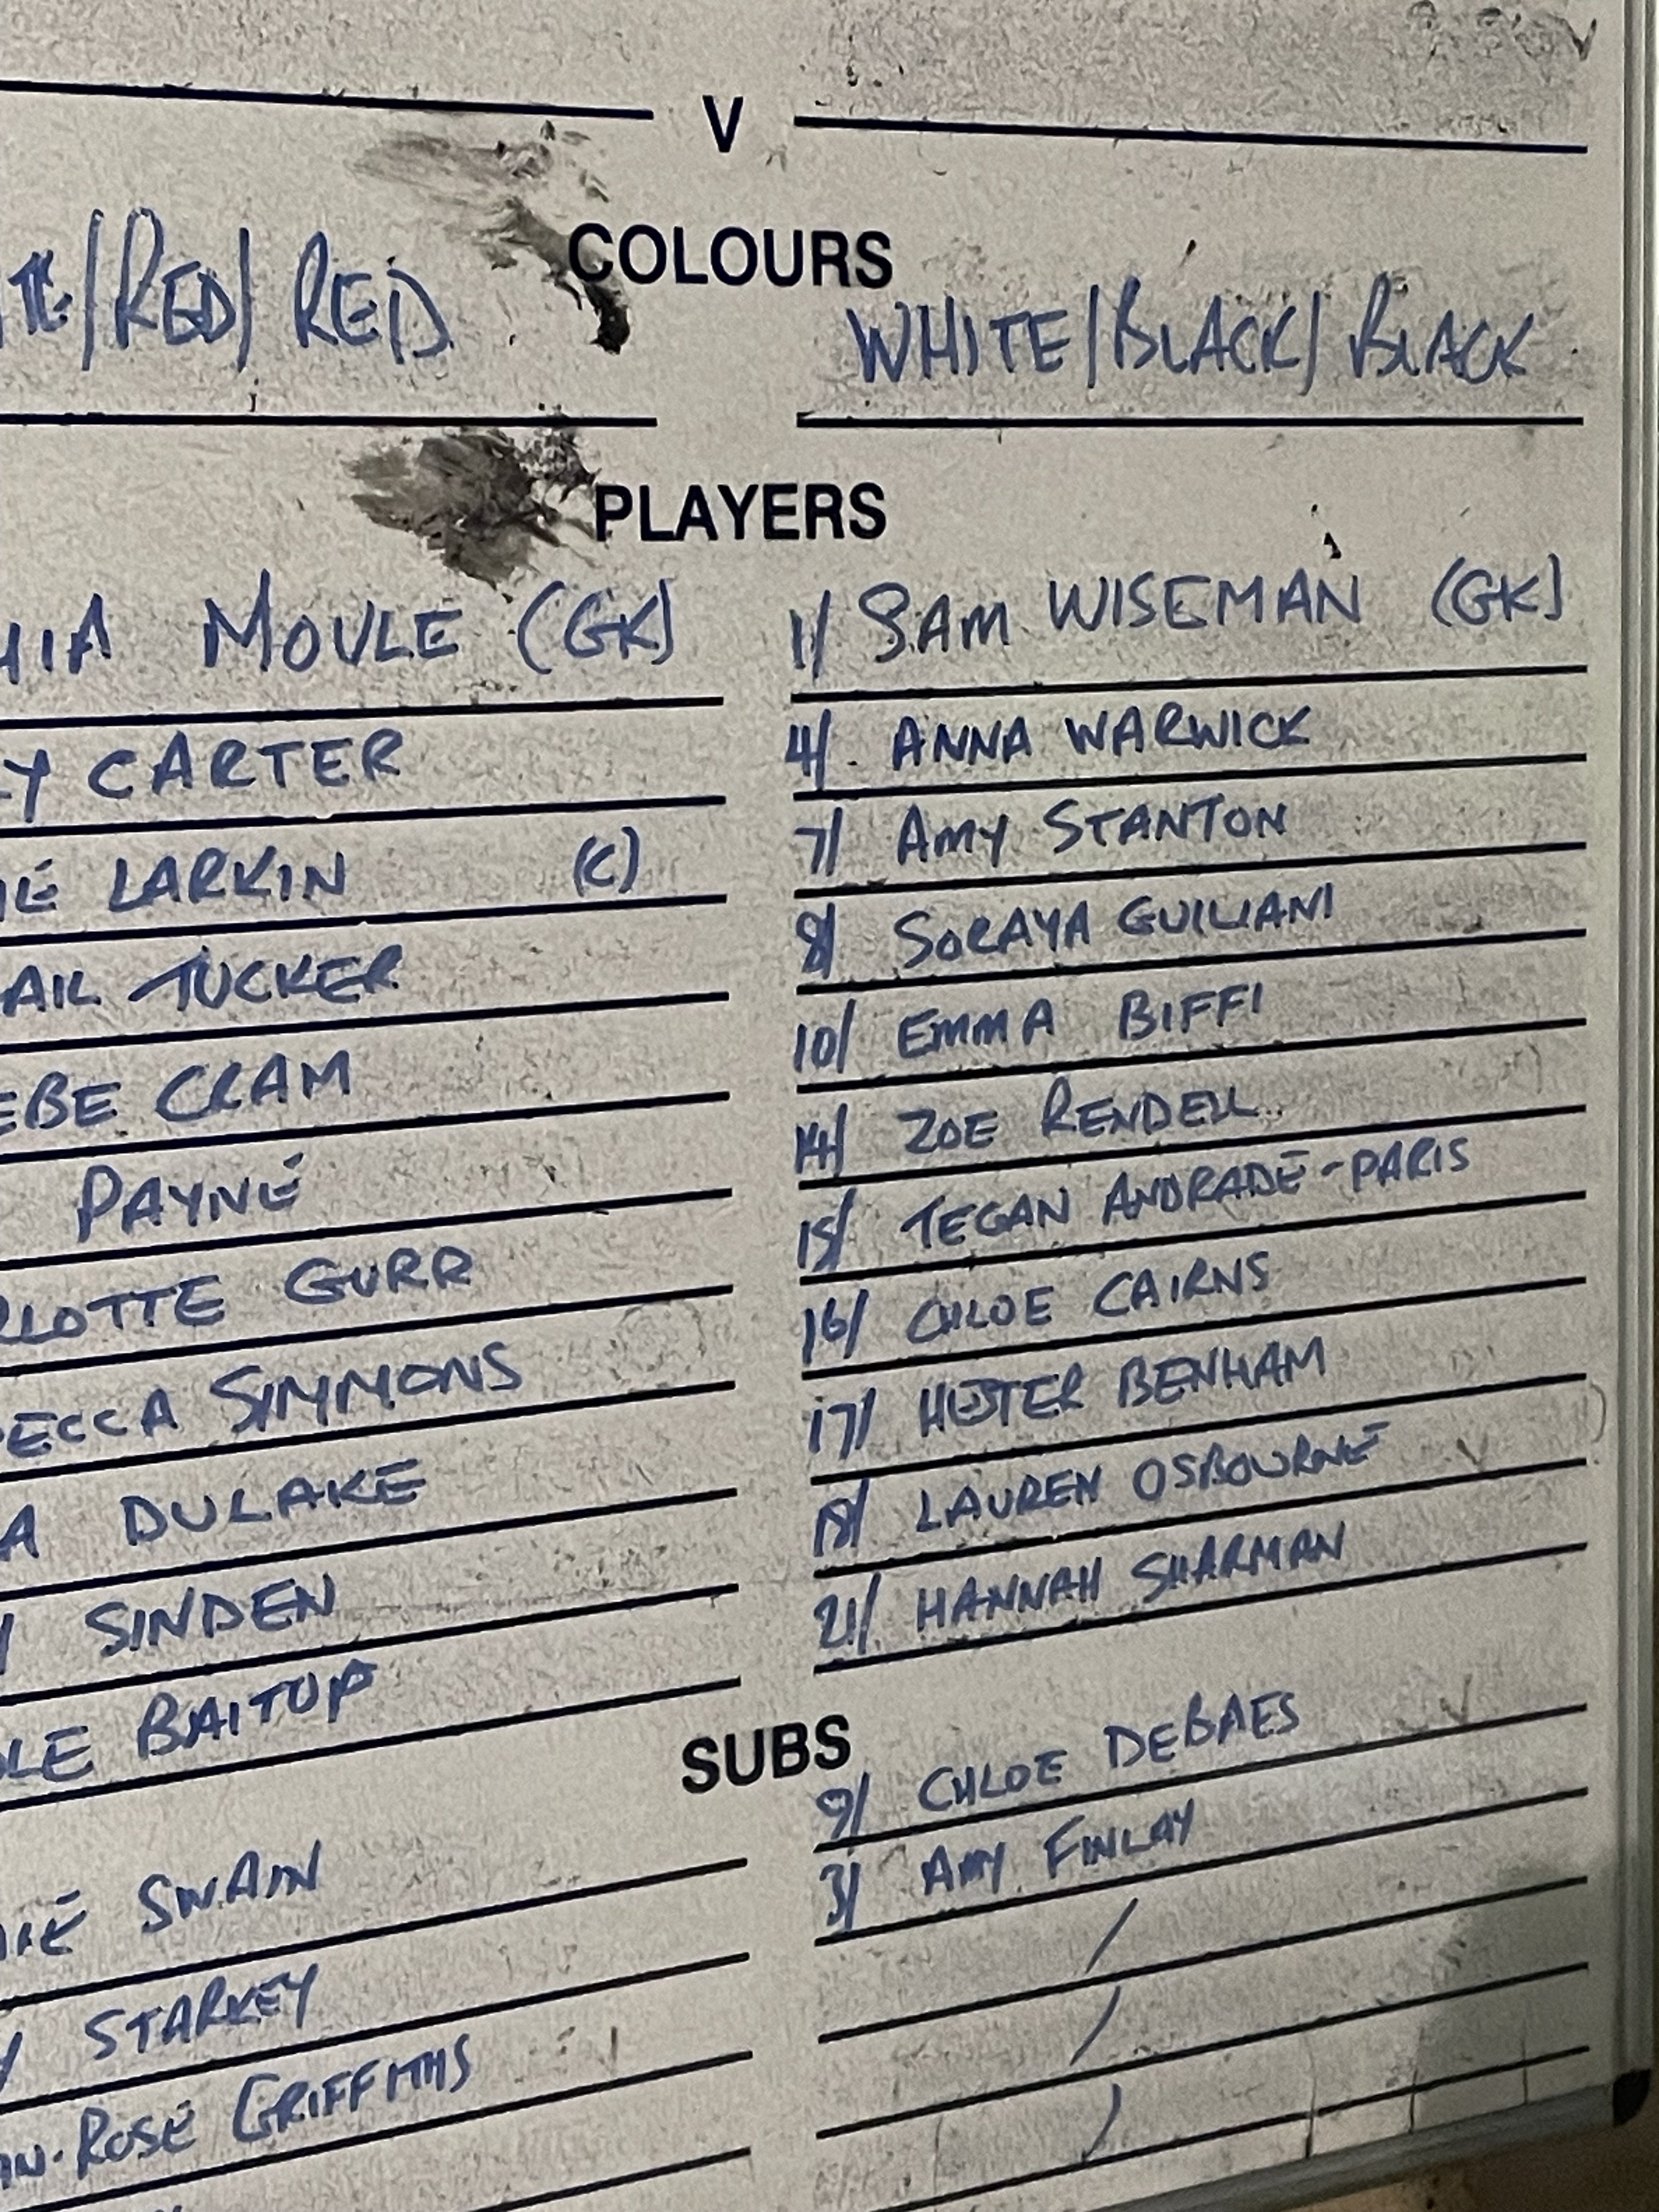 V
COLOURS
/RED/ RED
WHITE/BLACK/BLACK
PLAYERS
MOULE (GK)
1/ SAM WISEMAN (GK)
CARTER
4/ ANNA WARWICK
LARKIN (C)
7/ AMY STANTON
TUCKER
8/ SORAYA GUILIANI
CRAM
10/ EMMA BIFFI
PAYNE
14/ ZOE RENDELL
GURR
15/ TEGAN ANDRADE-PARIS
SIMMONS
16/ CHLOE CAIRNS
DULAKE
17/ HESTER BENHAM
SINDEN
18/ LAUREN OSBOURNE
BAITUP
21/ HANNAH SHARMAN
SUBS
SWAIN
9/ CHLOE DEBAES
STARKEY
3/ AMY FINLAY
ROSE GRIFFITHS
/
/
/